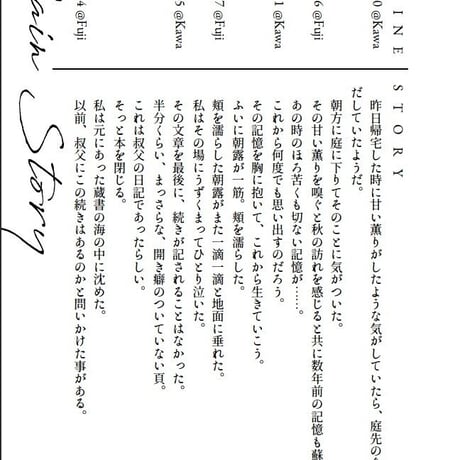 INE STORY
0 @Kawa
6 @Fuji
1 @Kawa
7 @Fuji
5 @Kawa
4 @Fuji
昨日帰宅した時に甘い薫りがしたような気がしていたら、庭先の
だしていたようだ。
朝方に庭に下りてそのことに気がついた。
その甘い薫りを嗅ぐと秋の訪れを感じると共に数年前の記憶も蘇
あの時のほろ苦くも切ない記憶が……。
これから何度でも思い出すのだろう。
その記憶を胸に抱いて、これから生きていこう。
ふいに朝露が一筋。頬を濡らした。
頬を濡らした朝露がまた一滴一滴と地面に垂れた。
私はその場にうずくまってひとり泣いた。
その文章を最後に、続きが記されることはなかった。
半分くらい、まっさらな、開き癖のついていない頁。
これは叔父の日記であったらしい。
そっと本を閉じる。
私は元にあった蔵書の海の中に沈めた。
以前、叔父にこの続きはあるのかと問いかけた事がある。
ain Story